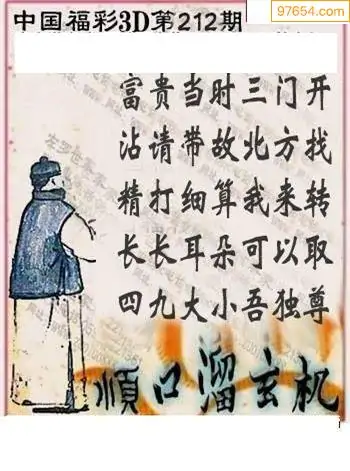 97654.com
中国福彩3D第212期
富贵当时三门开
沾请带故北方找
精打细算我来转
长长耳朵可以取
四九大小吾独尊
順口溜玄机